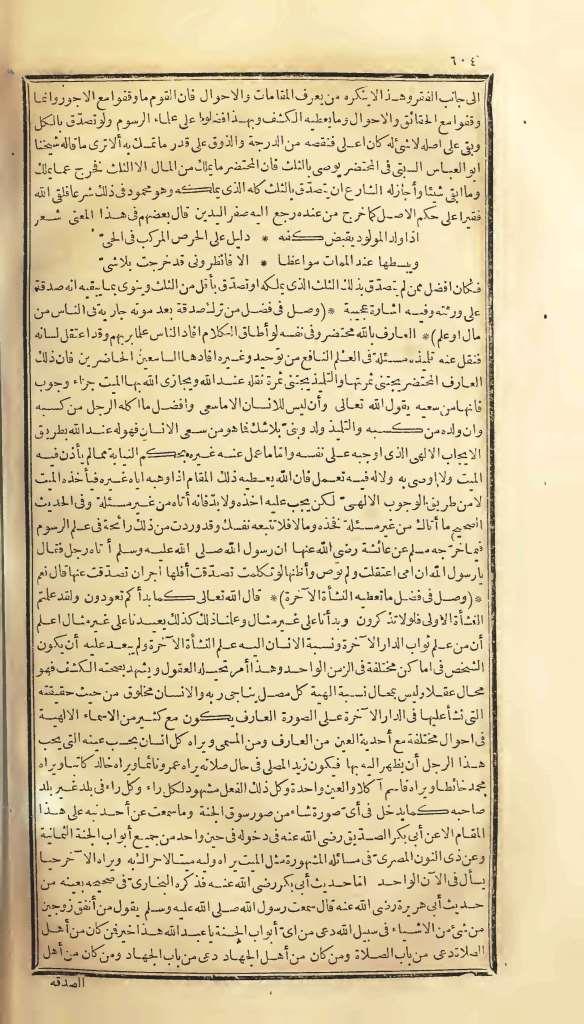 ٦٠٤
الى جانب الفقر وهذا لا ينكره من يعرف المقامات والاحوال فان القوم ما وقفوا مع الاجور وانما
وقفوا مع الحقائق والاحوال وما يعطيه الكشف وبهذا فضلوا على علماء الرسوم ولو تصدّق بالكل
وبقى على اصله لاشئ له كان اعلى فنقصه من الدرجة والذوق على قدر ما تمسك به ألا ترى ما قاله شيخنا
ابو العباس السبتى فى المحتضر يوصى بالثلث فان المحتضر ما يملك من المال الا الثلث فخرج عما يملك
وما ابقى شيئا وأجاز له الشارع ان يتصدّق بالثلث كله الذى يملكه وهو محمود فى ذلك شرعا فلقى الله
فقيرا على حكم الاصل كما خرج من عنده رجع اليه صفر اليدين قال بعضهم فى هذا المعنى شعر
اذا ولد المولود يقبض كفه * دليل على الحرص المركب فى الحىّ
ويبسطها عند الممات مواعظا * الا فانظرونى قد خرجت بلا شىّ
فكان افضل ممن لم يتصدّق بذلك الثلث الذى يملكه او تصدّق بأقل من الثلث وينوى بما يبقيه انه صدقة
على ورثته وفيه اشارة عجيبة * (وصل فى فضل من ترك صدقة بعد موته جارية فى الناس من
مال او علم) * العارف بالله محتضر وفى نفسه لو أطاق الكلام افاد الناس علما بربهم وقد اعتقل لسانه
فنقل عنه تلميذه مسئلة فى العلم النافع من توحيد وغيره افادها السامعين الحاضرين فان ذلك
العارف المحتضر يجتنى ثمرتها والتلميذ يجتنى ثمرة نقله عند الله ويجازى الله بها الميت جزاء وجوب
فانها من سعيه يقول الله تعالى وأن ليس للانسان الا ما سعى وافضل ما اكله الرجل من كسبه
وان ولده من كسبه والتلميذ ولد وبنىّ بلا شك فما هو من سعى الانسان فهو له عند الله بطريق
الايجاب الالهى الذى اوجبه على نفسه واما ما عمل عنه غيره بحكم النيابة مما لم يأذن فيه
الميت ولا اوصى به ولا له فيه تعمل فان الله يعطيه ذلك المقام اذا وهبه اياه غيره فيأخذه الميت
لا من طريق الوجوب الالهىّ لكن يجب عليه اخذه ولا بدّ فانه أتاه من غير مسئلة وفى الحديث
الصحيح ما أتاك من غير مسئلة فخذه وما لا فلا تتبعه نفسك وقد وردت من ذلك رائحة فى علم الرسوم
فيما خرّجه مسلم عن عائشة رضى الله عنها ان رسول الله صلى الله عليه وسلم أتاه رجل فقال
يا رسول الله ان امى افتلتت ولم توص وأظنها لو تكلمت تصدّقت أفلها أجر ان تصدّقت عنها قال نعم
* (وصل فى فضل ما تعطيه النشأة الآخرة) * قال الله تعالى كما بدأكم تعودون ولقد علمتم
النشأة الاولى فلولا تذكرون وبدأنا على غير مثال وعلمنا ذلك كذلك يعيدنا على غير مثال اعلم
أن من علم ثواب الدار الآخرة ونسبة الانسان اليه علم النشأة الآخرة ولم يبعد عليه أن يكون
الشخص فى اماكن مختلفة فى الزمن الواحد وهذا أمر تحيله العقول ويشهد بصحته الكشف فهو
محال عقلا وليس بمحال نسبة الهية كل مصلّ يناجى ربه والانسان مخلوق من حيث حقيقته
التى نشأ عليها فى الدار الآخرة على الصورة العارف يكون مع كثير من الاسماء الالهية
فى احوال مختلفة مع أحدية العين من العارف ومن المسمى ويراه كل انسان بحسب عينه التى يحب
هذا الرجل أن يظهر اليه بها فيكون زيد المصلى فى حال صلاته يراه عمرو نائما ويراه خالد كاتبا ويراه
محمد خائطا ويراه قاسم آكلا والعين واحدة وكل ذلك الفعل مشهود لكل راء وكل راء فى بلد غير بلد
صاحبه كما يدخل فى أىّ صورة شاء من صور سوق الجنة وما سمعت عن أحد نبه على هذا
المقام الا عن أبى بكر الصدّيق رضى الله عنه فى دخوله فى حين واحد من جميع أبواب الجنة الثمانية
وعن ذى النون المصرىّ فى مسائله المشهورة مثل الميت يراه وليه ميتا لا حراك به ويراه الآخر حيا
يسأل فى الآن الواحد اما حديث أبى بكر رضى الله عنه فذكره البخارىّ فى صحيحه بعينه من
حديث أبى هريرة رضى الله عنه قال سمعت رسول الله صلى الله عليه وسلم يقول من أنفق زوجين
من شئ من الاشياء فى سبيل الله دعى من اىّ أبواب الجنة يا عبد الله هذا خير فمن كان من أهل
الصلاة دعى من باب الصلاة ومن كان من أهل الجهاد دعى من باب الجهاد ومن كان من أهل
الصدقه